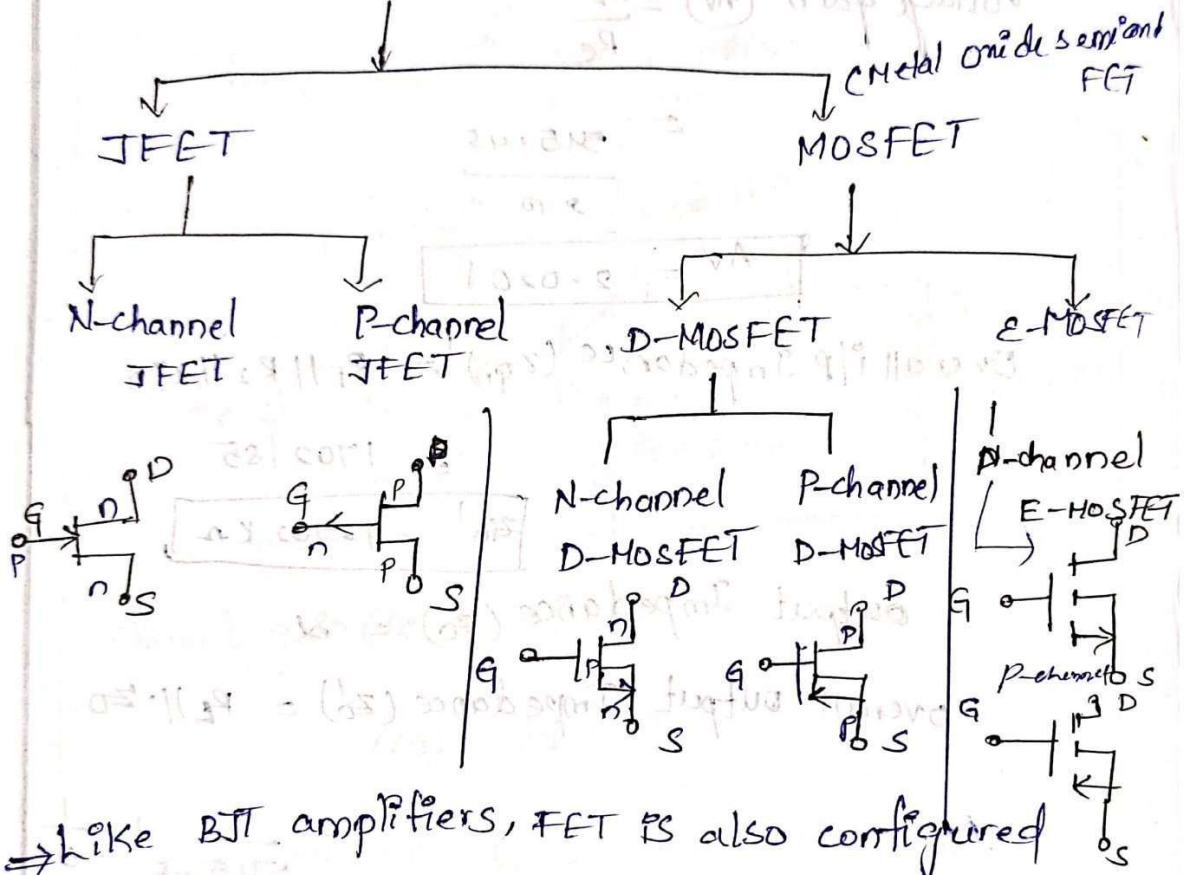 (Metal Oxide semicond
FET
JFET
MOSFET
N-channel
JFET
P-channel
JFET
D-MOSFET
E-MOSFET
N-channel
D-MOSFET
P-channel
D-MOSFET
N-channel
E-MOSFET
G
P
n
D
n
S
G
n
P
P
S
G
n
P
n
D
S
G
P
P
D
S
G
D
S
P-channel
G
D
S
⇒ Like BJT amplifiers, FET is also configured